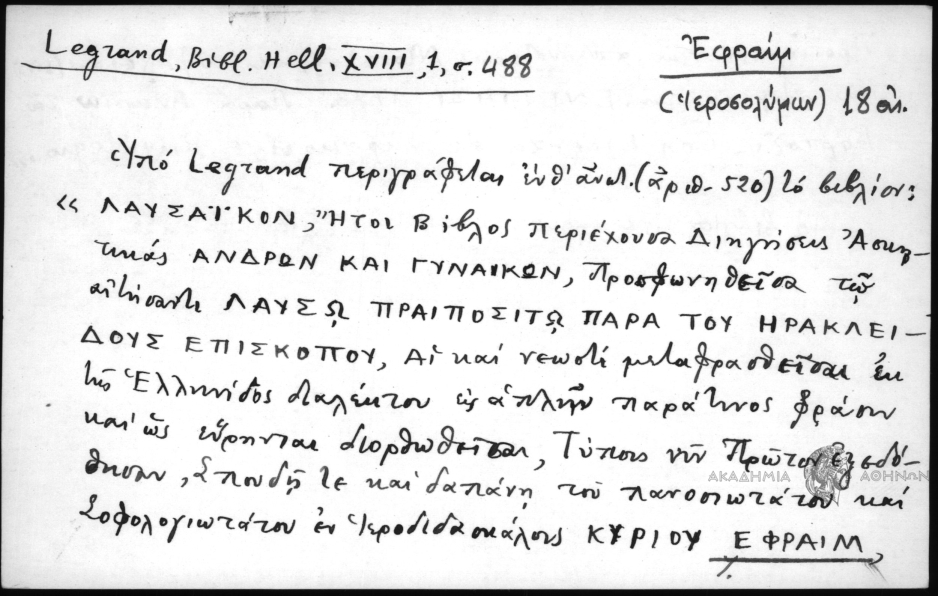 Legrand, Bibl. Hell. XVIII, 1, σ. 488
Ἐφραίμ
(Ἱεροσολύμων) 18 αἰ.
Ὑπό Legrand περιγράφεται ἐνθ' ἀνωτ. (ἀριθ. 520) τό βιβλίον:
« ΛΑΥΣΑΪΚΟΝ, Ἤτοι Βίβλος περιέχουσα Διηγήσεις Ἀσκη-
τικάς ΑΝΔΡΩΝ ΚΑΙ ΓΥΝΑΙΚΩΝ, Προσφωνηθεῖσα τῷ
αἰτήσαντι ΛΑΥΣῼ ΠΡΑΙΠΟΣΙΤῼ ΠΑΡΑ ΤΟΥ ΗΡΑΚΛΕΙ-
ΔΟΥΣ ΕΠΙΣΚΟΠΟΥ, Αἵ καί νεωστί μεταφρασθεῖσαι ἐκ
τῆς Ἑλληνίδος διαλέκτου εἰς ἁπλῆν παρά τινος φράσιν
καί ὡς εὕρηνται διορθωθεῖσαι, Τύποις νῦν Πρῶτον ἐξεδό-
θησαν, Σπουδῇ τε καί δαπάνῃ τοῦ πανοσιωτάτου καί
Σοφολογιωτάτου ἐν Ἱεροδιδασκάλοις ΚΥΡΙΟΥ ΕΦΡΑΙΜ,
./.
ΑΚΑΔΗΜΙΑ ΑΘΗΝΩΝ